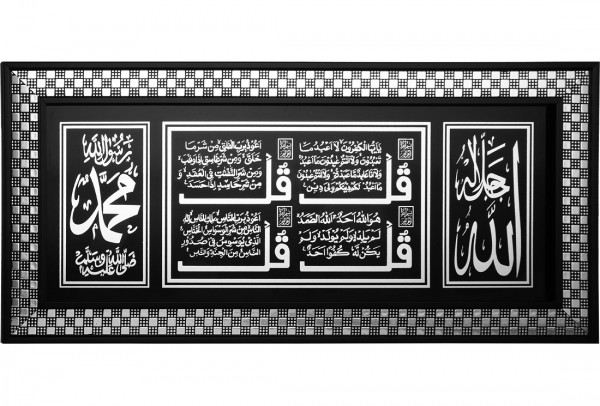 جل جلاله
الله
قل
يأيها الكفرون لا أعبد ما
تعبدون ولا أنتم عبدون ما أعبد
ولا أنا عابد ما عبدتم ولا أنتم عبدون
ما أعبد لكم دينكم ولي دين
قل
أعوذ برب الفلق من شر ما
خلق ومن شر غاسق إذا وقب
ومن شر النفثت في العقد و
من شر حاسد إذا حسد
قل
هو الله أحد الله الصمد
لم يلد ولم يولد ولم
يكن له كفوا أحد
قل
أعوذ برب الناس ملك الناس إله
الناس من شر الوسواس الخناس
الذي يوسوس في صدور
الناس من الجنة والناس
رسول الله
محمد
صلى الله عليه وسلم